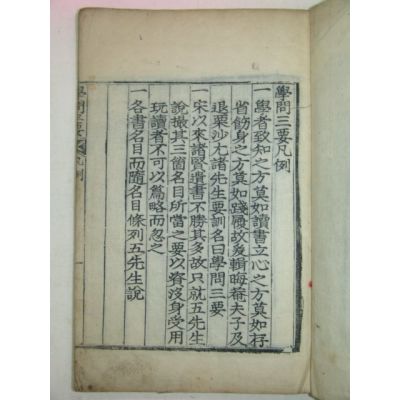 學問三要凡例
一學者致知之方莫如讀書立心之方莫如存
省飭身之方莫如踐履故玆輯晦菴夫子及
退栗沙尤諸先生要訓名曰學問三要
一宋以來諸賢遺書不勝其多故只就五先生
說撮其三箇名目所當之要以資沒身受用
玩讀者不可以篇略而忽之
一各書名目而隨名目條列五先生說
學問三要 凡例